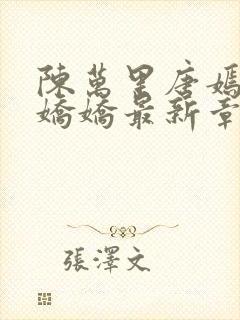 陳萬里唐嫣
嬌嬌最新章
張澤文